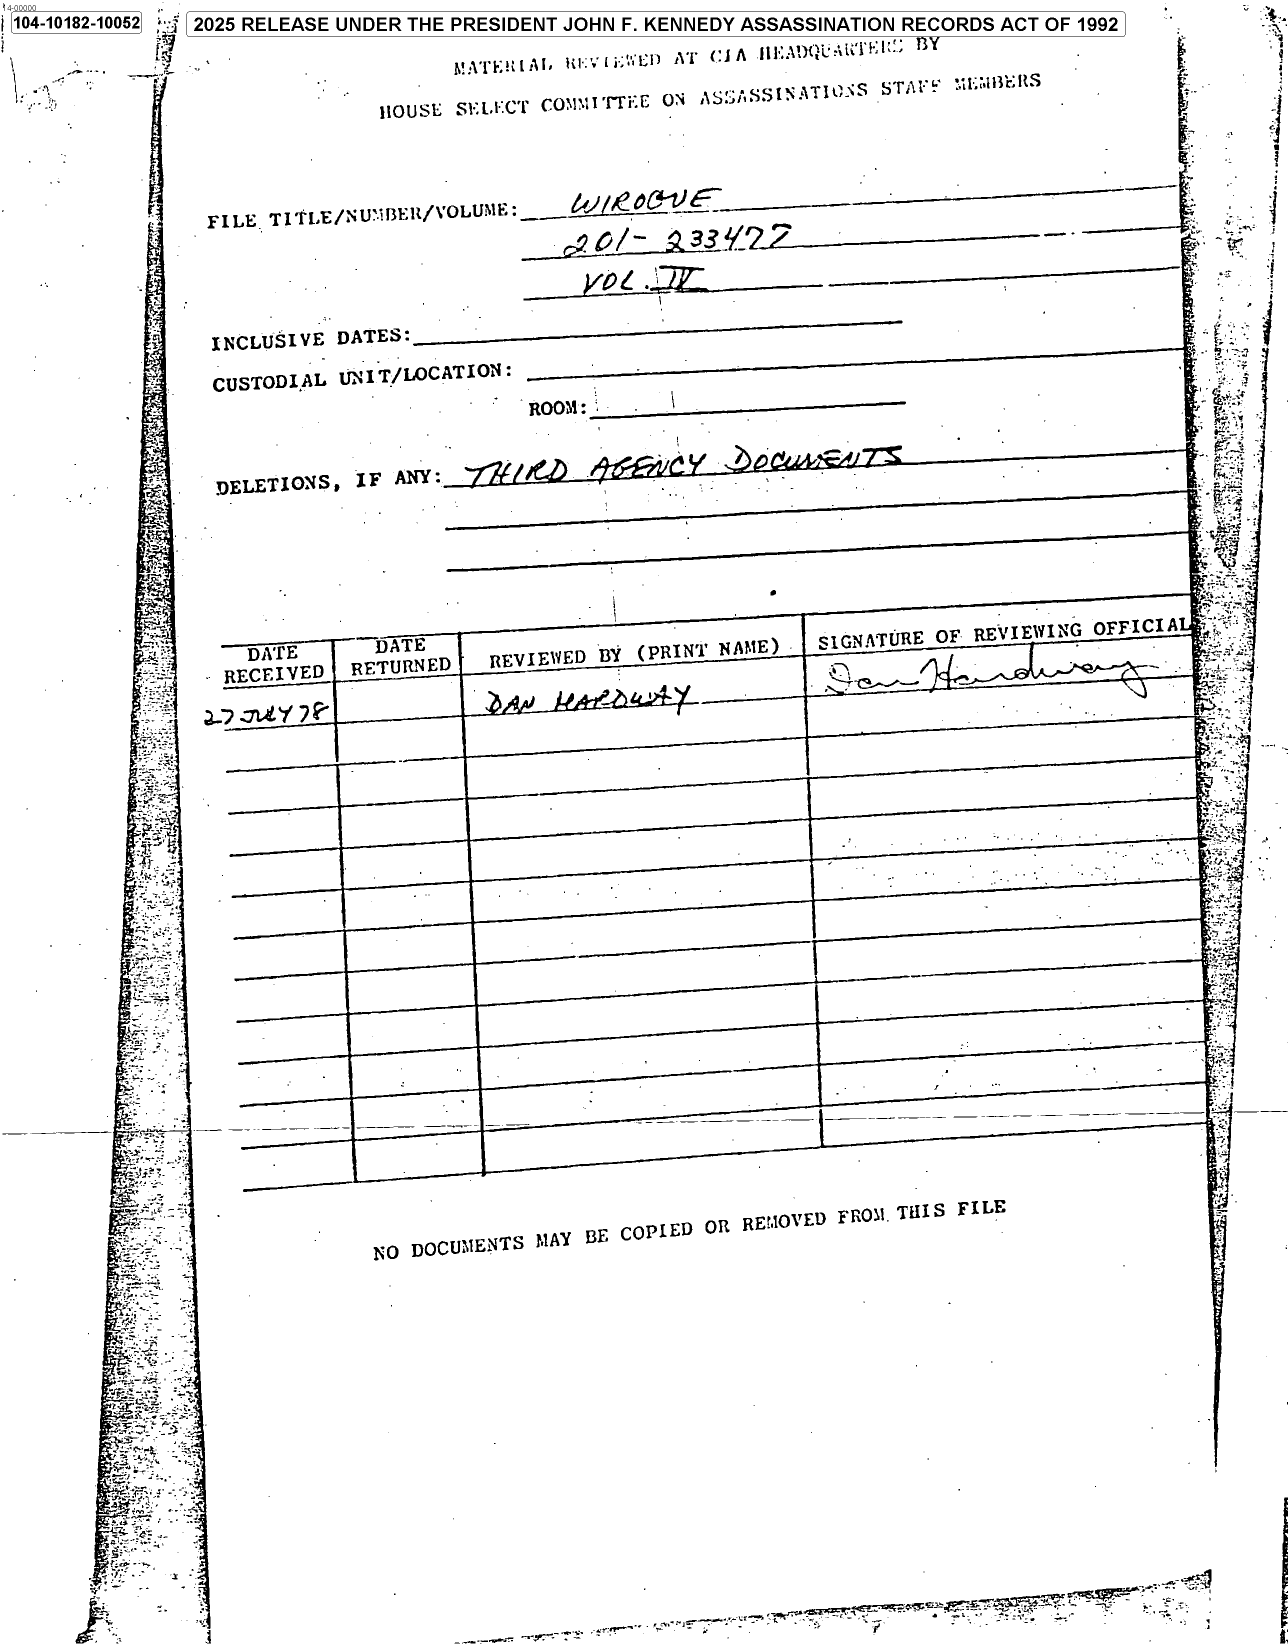 4-00000
104-10182-10052
2025 RELEASE UNDER THE PRESIDENT JOHN F. KENNEDY ASSASSINATION RECORDS ACT OF 1992
MATERIAL REVIEWED AT CIA HEADQUARTERS BY
HOUSE SELECT COMMITTEE ON ASSASSINATIONS STAFF MEMBERS
FILE TITLE/NUMBER/VOLUME: WIROGUE
201- 233477
VOL. IV
INCLUSIVE DATES:
CUSTODIAL UNIT/LOCATION:
ROOM:
DELETIONS, IF ANY: THIRD AGENCY DOCUMENTS
DATE RECEIVED DATE RETURNED REVIEWED BY (PRINT NAME) SIGNATURE OF REVIEWING OFFICIAL
27 JULY 78 DAN HARDWAY Dan Hardway
NO DOCUMENTS MAY BE COPIED OR REMOVED FROM THIS FILE